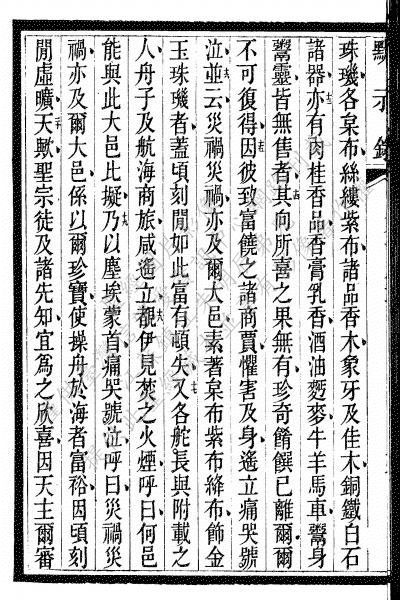 默示錄
珠璣各枲布絲縷紫布諸品香木象牙及佳木銅鐵白石
諸器亦有肉桂香品香膏乳香酒油麪麥牛羊馬車鬻身
鬻靈皆無售者其向所喜之果無有珍奇餚饌已離爾爾
不可復得因彼致富饒之諸商賈懼害及身遙立痛哭號
泣並云災禍災禍亦及爾大邑素著枲布紫布絳布飾金
玉珠璣者蓋頃刻閒如此富有頓失又各舵長與附載之
人舟子及航海商旅咸遙立覩伊見焚之火煙呼曰何邑
能與此大邑比擬乃以塵埃蒙首痛哭號泣呼曰災禍災
禍亦及爾大邑係以爾珍寶使操舟於海者富裕因頃刻
閒虛曠天歟聖宗徒及諸先知宜為之欣喜因天主爾審